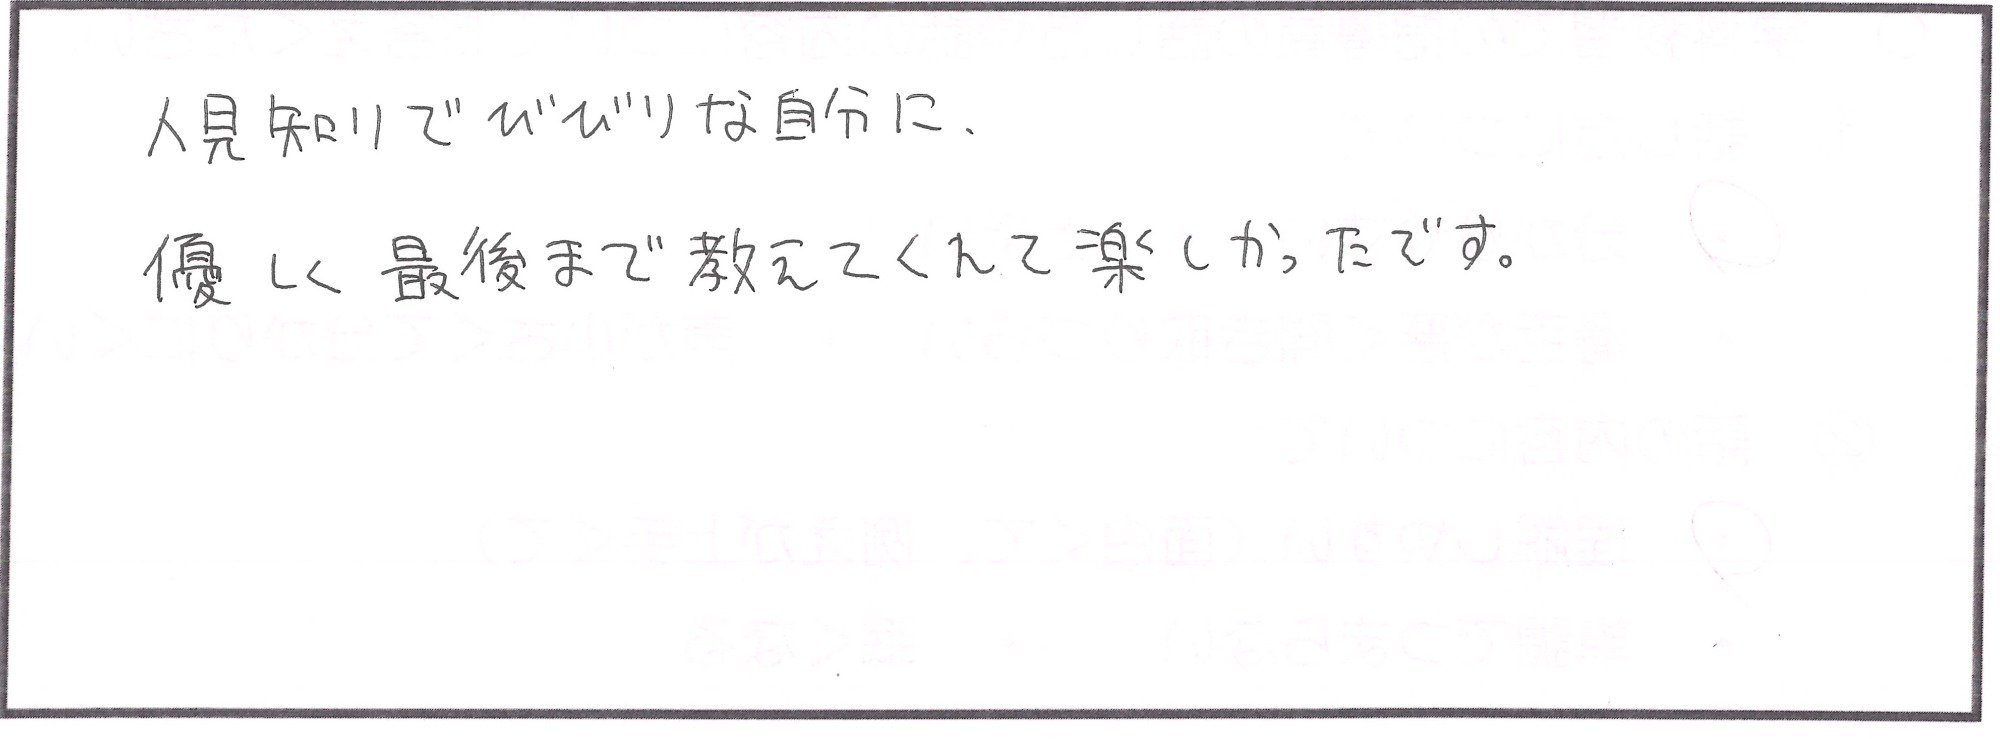 人見知りでびびりな自分に、
優しく最後まで教えてくれて楽しかったです。